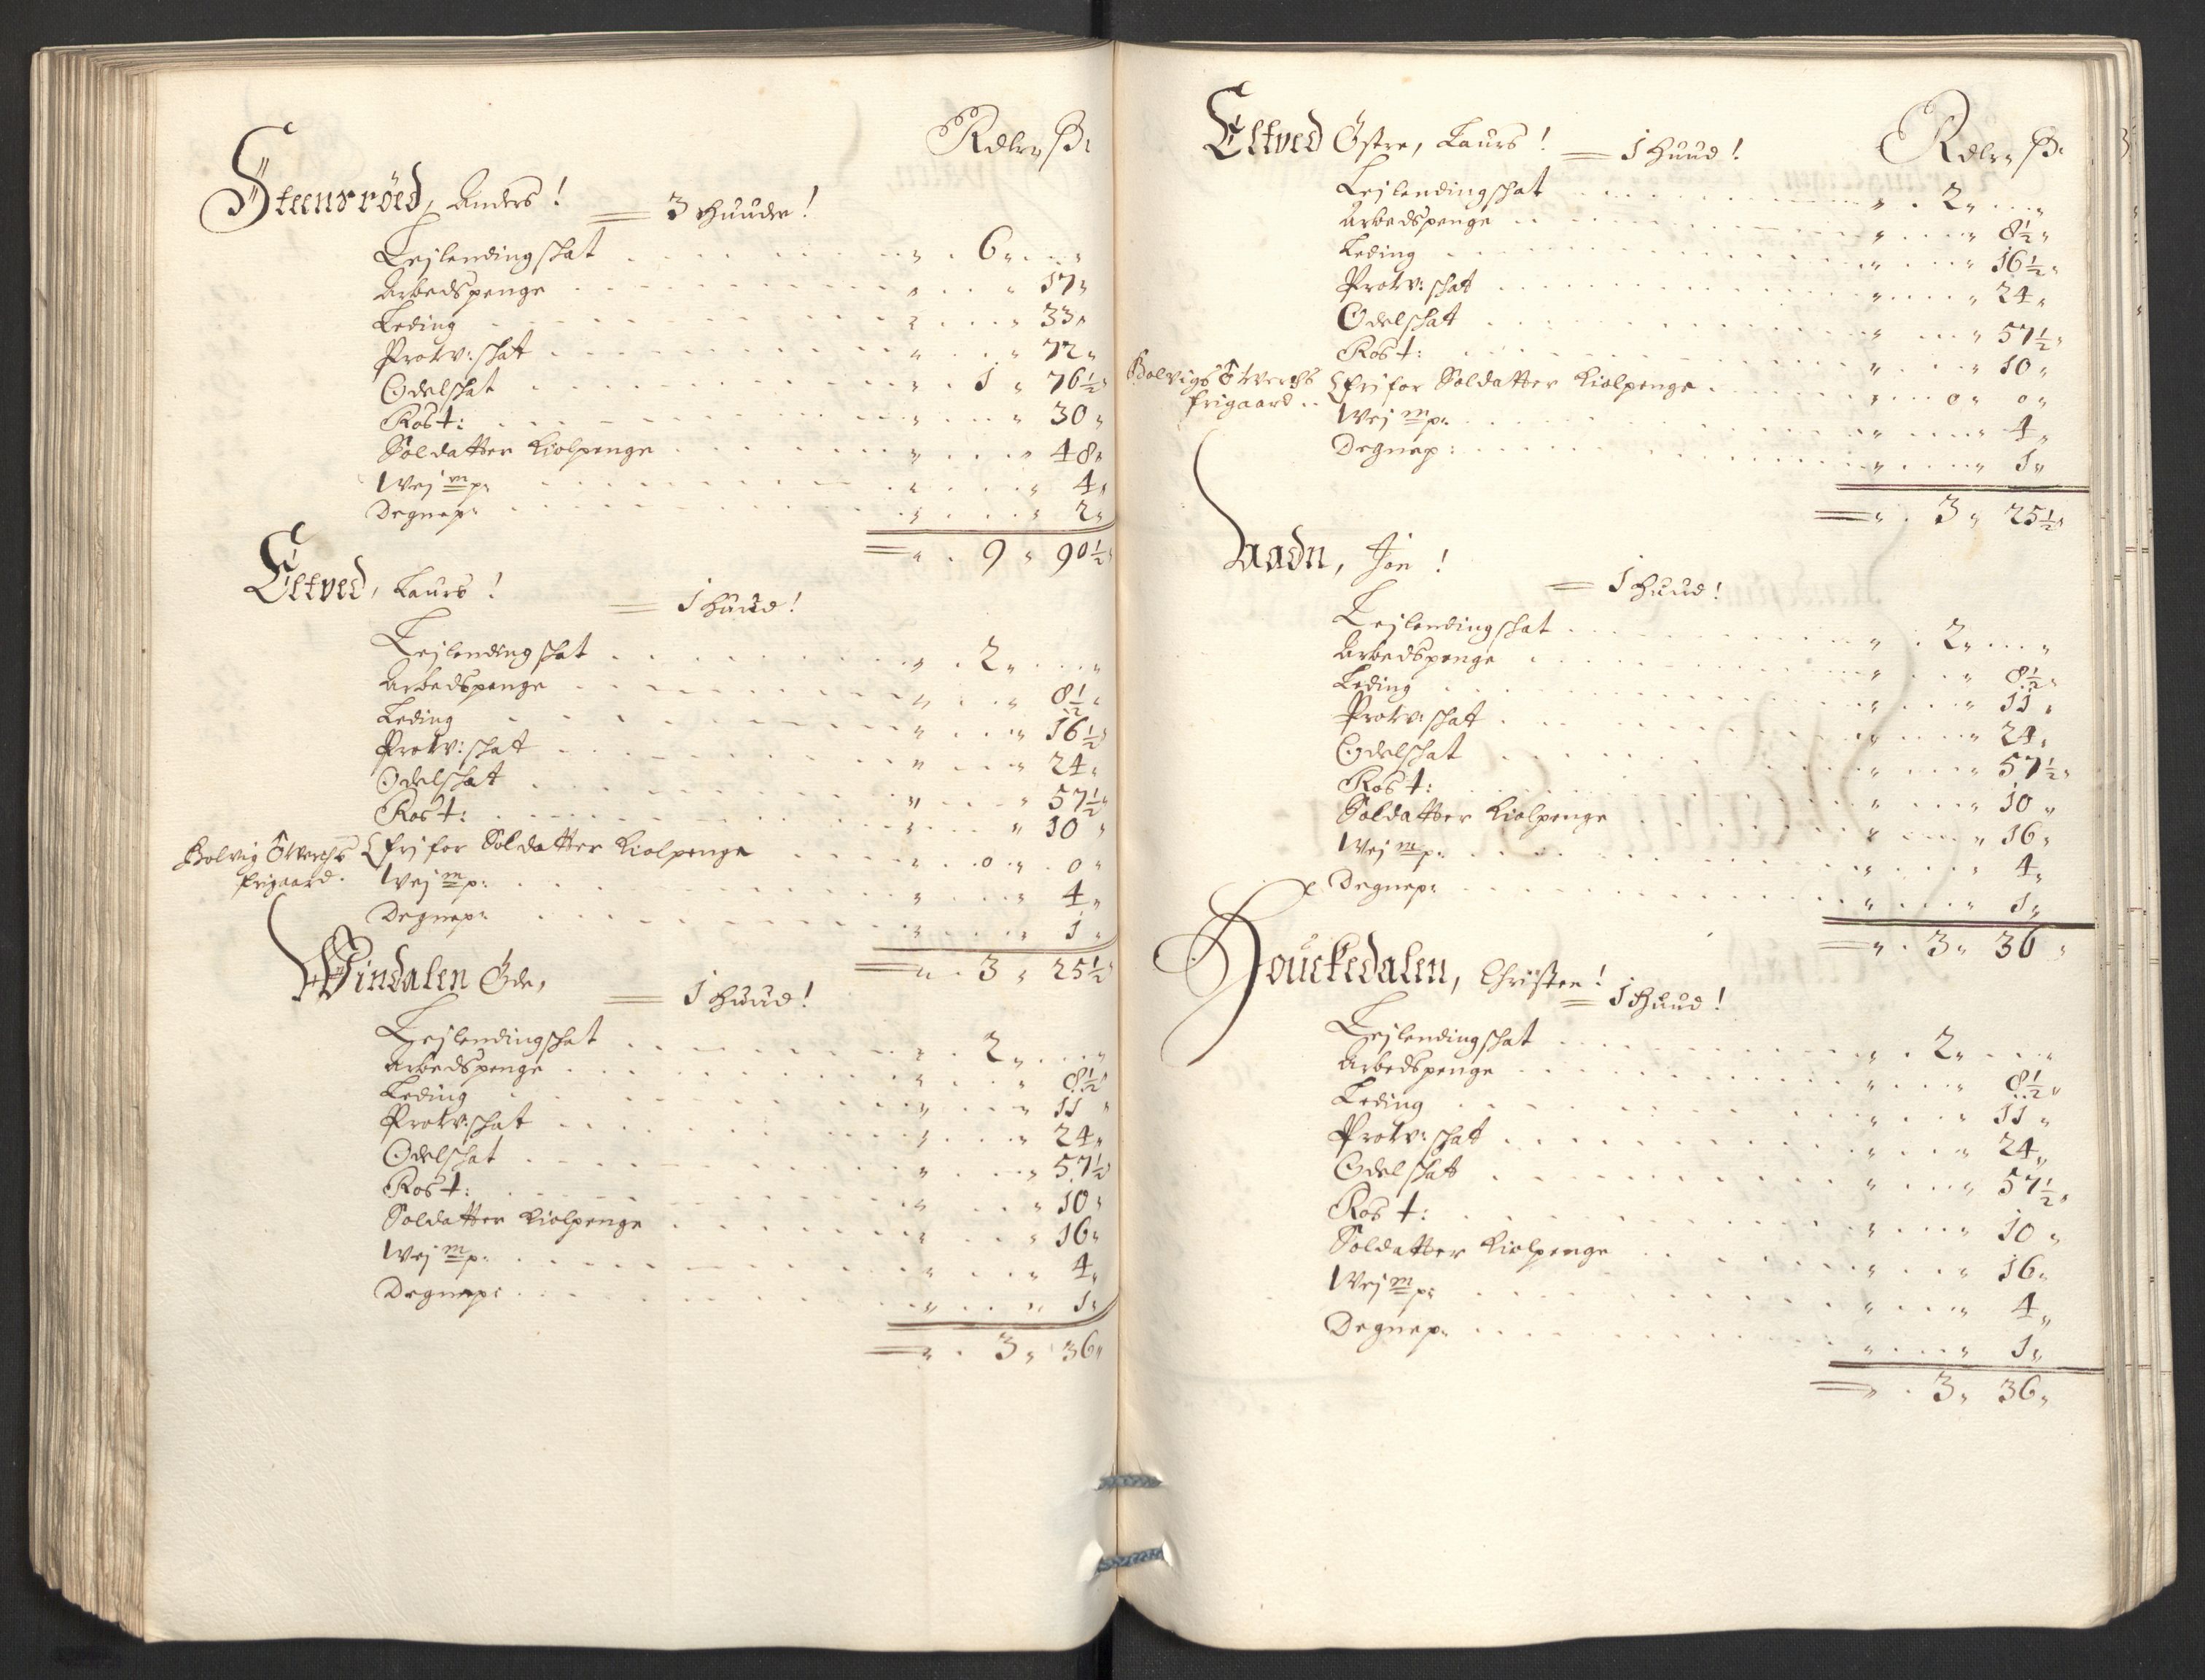 Rdlr ß:
Steensröed, Anders! = 3 Huude!
Leylendingschat . . 6 „ . . „
Arbedspenge . . „ 17 „
Leding . . „ 33 „
Protv: schat . . „ 72 „
Odelschat . . 1 „ 76½ „
Rost: . . „ 30 „
Soldatter Kiolpenge . . „ 48 „
Wej m p: . . „ 4 „
Degnep: . . „ 2 „
= „ . 9 „ 90½ „
Eltved, Laurs! = 1 Huud!
Leylendingschat . . 2 „ . . „
Arbedspenge . . „ 8½ „
Leding . . „ 16½ „
Protv: schat . . „ 24 „
Odelschat . . „ 57½ „
Rost: . . „ 10 „
Bolvig Werchs { fri for Soldatter Kiolpenge . . 0 „ 0 „
frigaard.
Wej m p: . . „ 4 „
Degnep: . . „ 1 „
= „ . 3 „ 25½ „
Windalen Öde, = 1 Huud!
Leylendingschat . . 2 „ . . „
Arbedspenge . . „ 8½ „
Leding . . „ 11 „
Protv: schat . . „ 24 „
Odelschat . . „ 57½ „
Rost: . . „ 10 „
Soldatter Kiolpenge . . „ 16 „
Wej m p: . . „ 4 „
Degnep: . . „ 1 „
= „ . 3 „ 36 „
Rdlr ß:
Eltved Östre, Laurs! = 1 Huud!
Leylendingschat . . 2 „ . . „
Arbedspenge . . „ 8½ „
Leding . . „ 16½ „
Protv: schat . . „ 24 „
Odelschat . . „ 57½ „
Rost: . . „ 10 „
Bolvigs Werchs { fri for Soldatter Kiolpenge . . 0 „ 0 „
frigaard . .
Wej m p: . . „ 4 „
Degnep: . . „ 1 „
= „ . 3 „ 25½ „
Aadn, Jon! = 1 Huud!
Leylendingschat . . 2 „ . . „
Arbedspenge . . „ 8½ „
Leding . . „ 11 „
Protv: schat . . „ 24 „
Odelschat . . „ 57½ „
Rost: . . „ 10 „
Soldatter Kiolpenge . . „ 16 „
Wej m p: . . „ 4 „
Degnep: . . „ 1 „
= „ . 3 „ 36 „
Houckedalen, Christen! = 1 Huud!
Leylendingschat . . 2 „ . . „
Arbedspenge . . „ 8½ „
Leding . . „ 11 „
Protv: schat . . „ 24 „
Odelschat . . „ 57½ „
Rost: . . „ 10 „
Soldatter Kiolpenge . . „ 16 „
Wej m p: . . „ 4 „
Degnep: . . „ 1 „
= „ . 3 „ 36 „